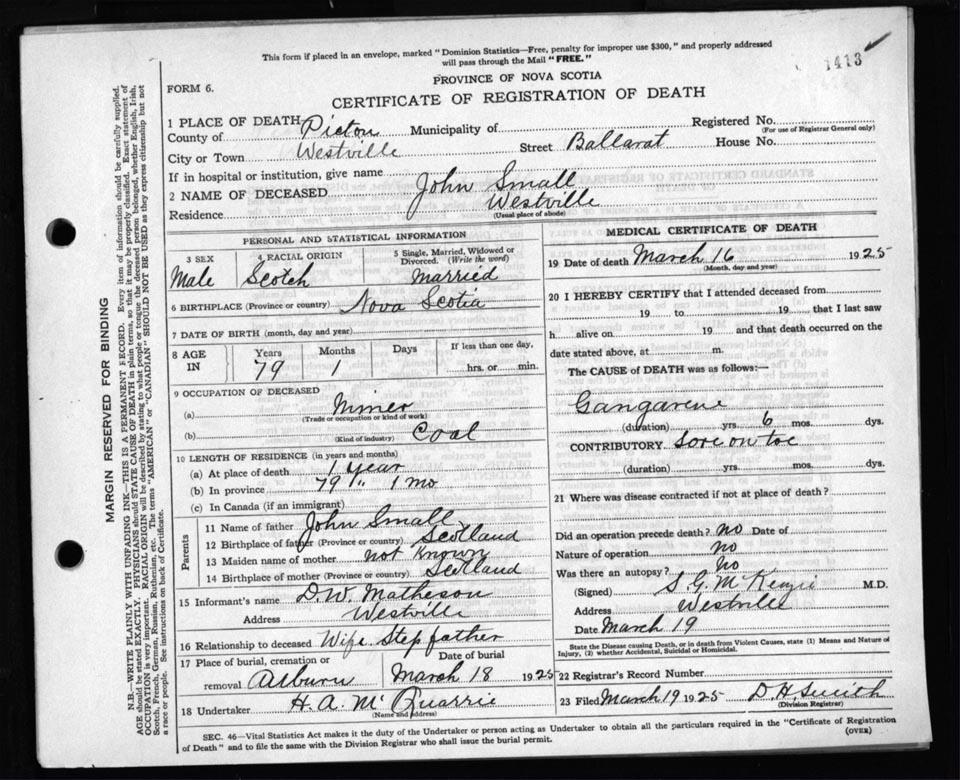 This form if placed in an envelope, marked "Dominion Statistics—Free, penalty for improper use $300," and properly addressed
will pass through the Mail "FREE."
1413
PROVINCE OF NOVA SCOTIA
FORM 6.
CERTIFICATE OF REGISTRATION OF DEATH
1 PLACE OF DEATH
County of Pictou Municipality of Registered No.
(For use of Registrar General only)
City or Town Westville Street Ballarat House No.
If in hospital or institution, give name
2 NAME OF DECEASED John Small
Residence Westville
(Usual place of abode)
PERSONAL AND STATISTICAL INFORMATION
3 SEX 4 RACIAL ORIGIN 5 Single, Married, Widowed or
Divorced. (Write the word)
Male Scotch Married
6 BIRTHPLACE (Province or country) Nova Scotia
7 DATE OF BIRTH (month, day and year)
8 AGE IN Years Months Days If less than one day,
79 1 hrs. or min.
9 OCCUPATION OF DECEASED
(a) Miner
(Trade or occupation or kind of work)
(b) Coal
(Kind of industry)
10 LENGTH OF RESIDENCE (in years and months)
(a) At place of death 1 Year
(b) In province 79 " 1 mo
(c) In Canada (if an immigrant)
Parents
11 Name of father John Small
12 Birthplace of father (Province or country) Scotland
13 Maiden name of mother not Known
14 Birthplace of mother (Province or country) Scotland
15 Informant's name D.W. Matheson
Address Westville
16 Relationship to deceased Wife Step father
17 Place of burial, cremation or Date of burial
removal March 18 1925
18 Undertaker H. A. McQuarrie
(Name and address)
MEDICAL CERTIFICATE OF DEATH
19 Date of death March 16 1925
(Month, day and year)
20 I HEREBY CERTIFY that I attended deceased from
19 to 19 that I last saw
h alive on 19 and that death occurred on the
date stated above, at m.
The CAUSE of DEATH was as follows:—
Gangarene
(duration) yrs. 6 mos. dys.
CONTRIBUTORY Sore on toe
(duration) yrs. mos. dys.
21 Where was disease contracted if not at place of death?
Did an operation precede death? no Date of
Nature of operation no
Was there an autopsy? no
(Signed) S. G. McKenzie M.D.
Address Westville
Date March 19
State the Disease causing Death, or in death from Violent Causes, state (1) Means and Nature of
Injury, (2) whether Accidental, Suicidal or Homicidal.
22 Registrar's Record Number
23 Filed March 19 1925 D H Smith
(Division Registrar)
SEC. 46—Vital Statistics Act makes it the duty of the Undertaker or person acting as Undertaker to obtain all the particulars required in the "Certificate of Registration
of Death" and to file the same with the Division Registrar who shall issue the burial permit.
(OVER)
MARGIN RESERVED FOR BINDING
N.B.—WRITE PLAINLY WITH UNFADING INK—THIS IS A PERMANENT RECORD. Every item of information should be carefully supplied.
AGE should be stated EXACTLY. PHYSICIANS should STATE CAUSE OF DEATH in plain terms, so that it may be properly classified. Exact statement of
OCCUPATION is very important. RACIAL ORIGIN will be described by stating to what people or tongue the deceased person belonged, whether English, Irish,
Scotch, French, German, Russian, Ruthenian, etc. The terms "AMERICAN" or "CANADIAN" SHOULD NOT BE USED as they express citizenship but not
a race or people. See instructions on back of Certificate.